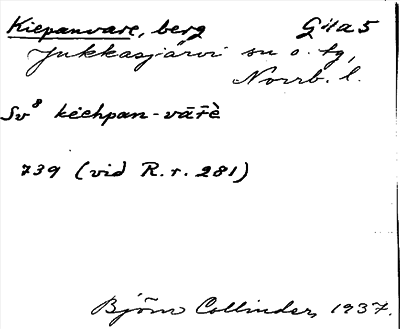 Kiepanvare, berg Gilla 5
Jukkasjärvi sn o. tg,
Norrb. l.
Sv⁸ kėėhpan-vāřè
739 (vid R.r. 281)
Björn Collinder, 1937.